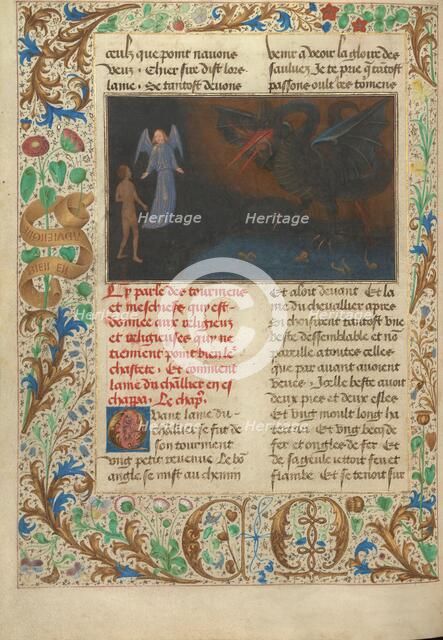 ceulx que point navons
veuz. Chier sire dist lors
lame. Se tantost devons
venir a veoir la gloire des
sauluez Je te prie q̃ tatost
passons oult̃ ces tormens
Heritage Heritage
Cy parle des tourmens
et meschiefz qui est
donnee aux religieux
et religieuses qui ne
tiennent point bien le
chastete. Et comment
lame du cħllier en es
chappa. Le chap̃.
Quant lame du
chevalier se fut de
son tourment
ung petit revenue. Le bõ
angle se mist au chemin
Et aloit devant Et la
me du chevallier apres
en choisirent tantost une
beste dessemblable et nõ
pareille a toutes celles
que par avant avoient
veues. Icelle beste avoit
deux piez et deux esles.
Et ung moult long ha
terel. Et ung becq de
fer et ongles de fer. Et
de sa geule yettoit feu et
flambe. Et se tenoit sur
Heritage Heritage